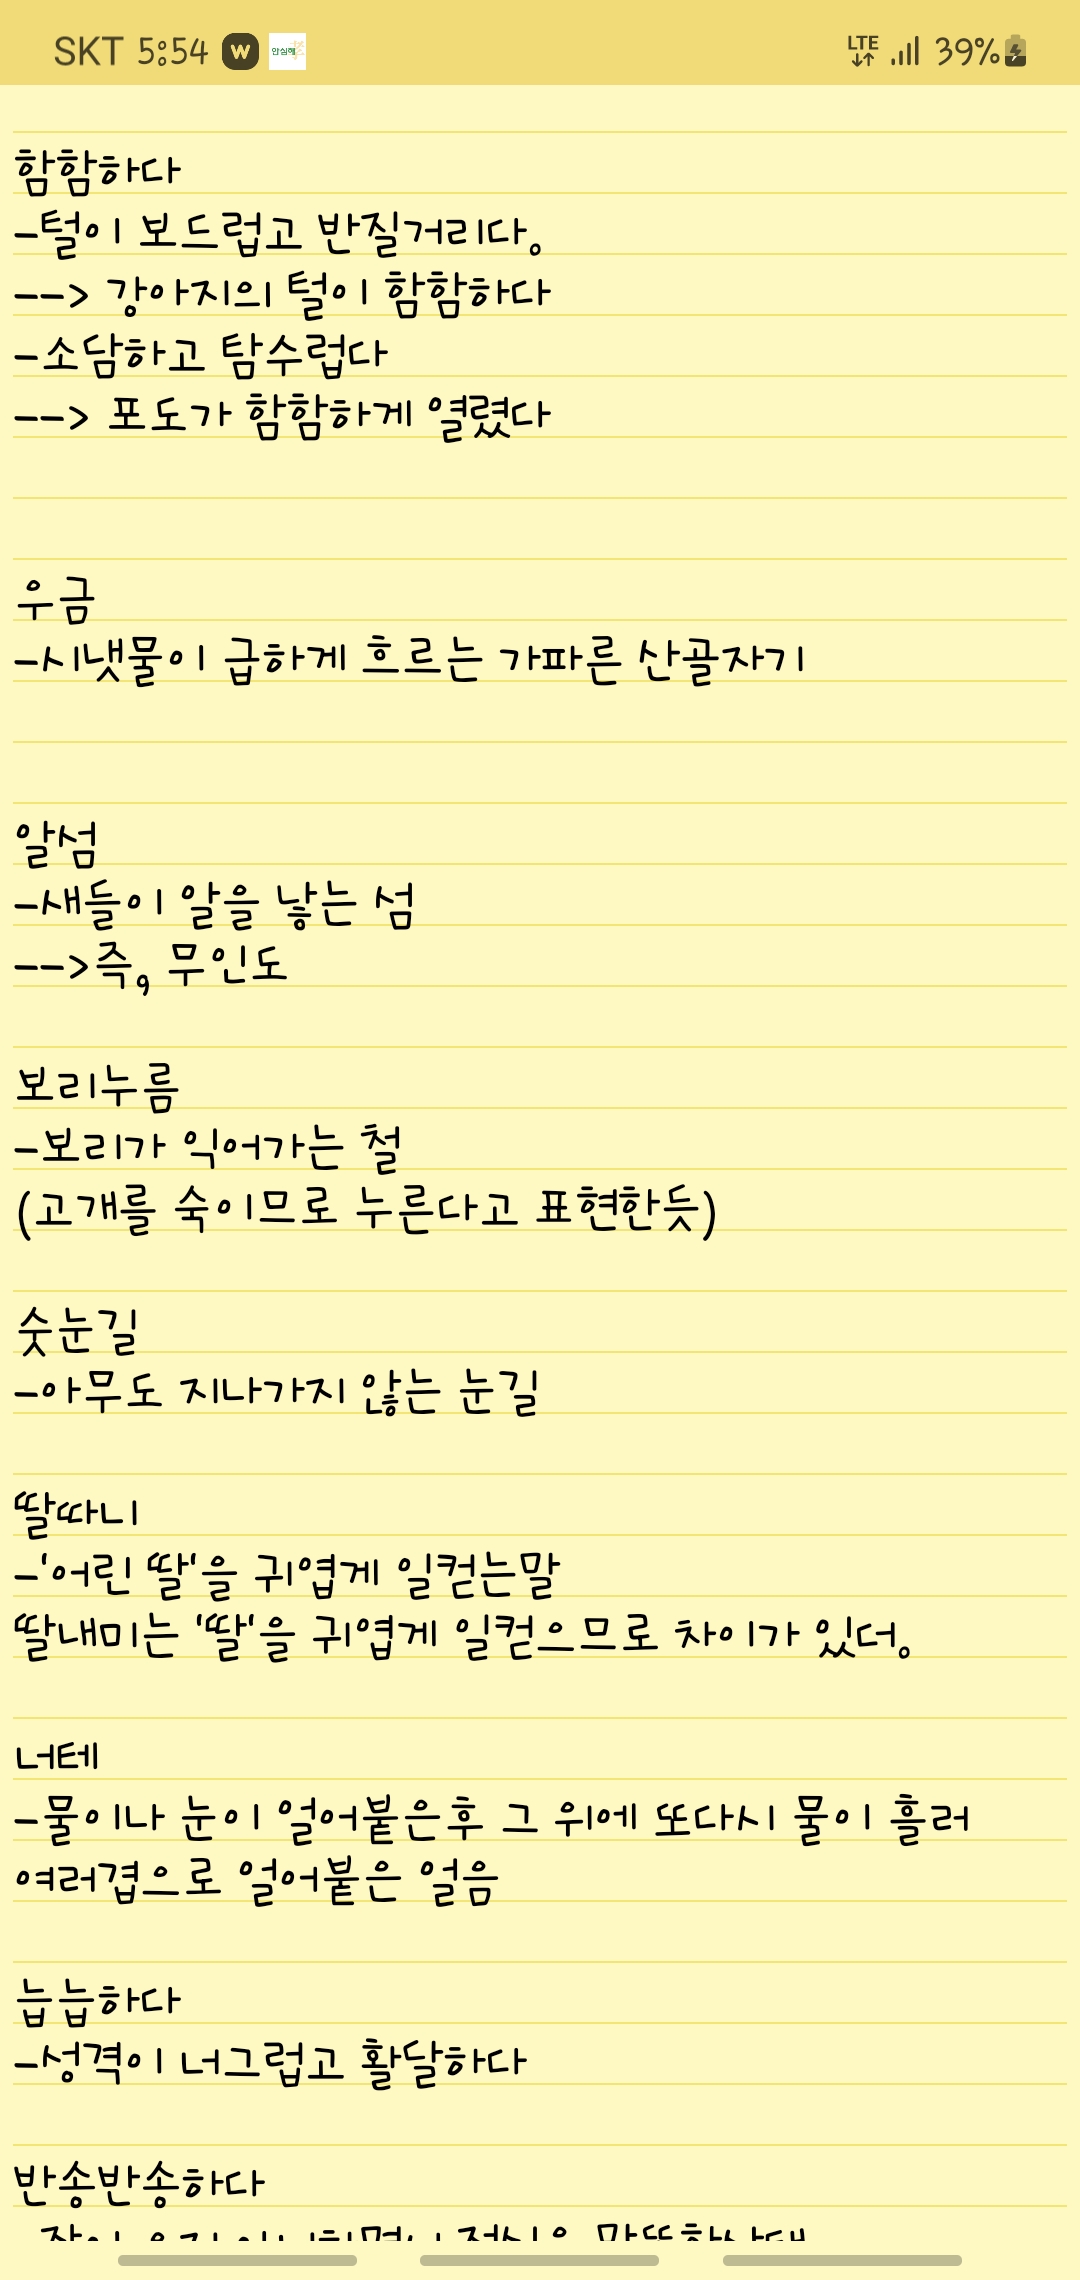 SKT 5:54 W 안심해 LTE 39%
함함하다
-털이 보드럽고 반질거리다.
--> 강아지의 털이 함함하다
-소담하고 탐수럽다
--> 포도가 함함하게 열렸다
우금
-시냇물이 급하게 흐르는 가파른 산골자기
알섬
-새들이 알을 낳는 섬
-->즉, 무인도
보리누름
-보리가 익어가는 철
(고개를 숙이므로 누른다고 표현한듯)
숫눈길
-아무도 지나가지 않는 눈길
딸따니
-'어린 딸'을 귀엽게 일컫는말
딸내미는 '딸'을 귀엽게 일컫으므로 차이가 있더.
너테
-물이나 눈이 얼어붙은후 그 위에 또다시 물이 흘러
여러겹으로 얼어붙은 얼음
늡늡하다
-성격이 너그럽고 활달하다
반송반송하다